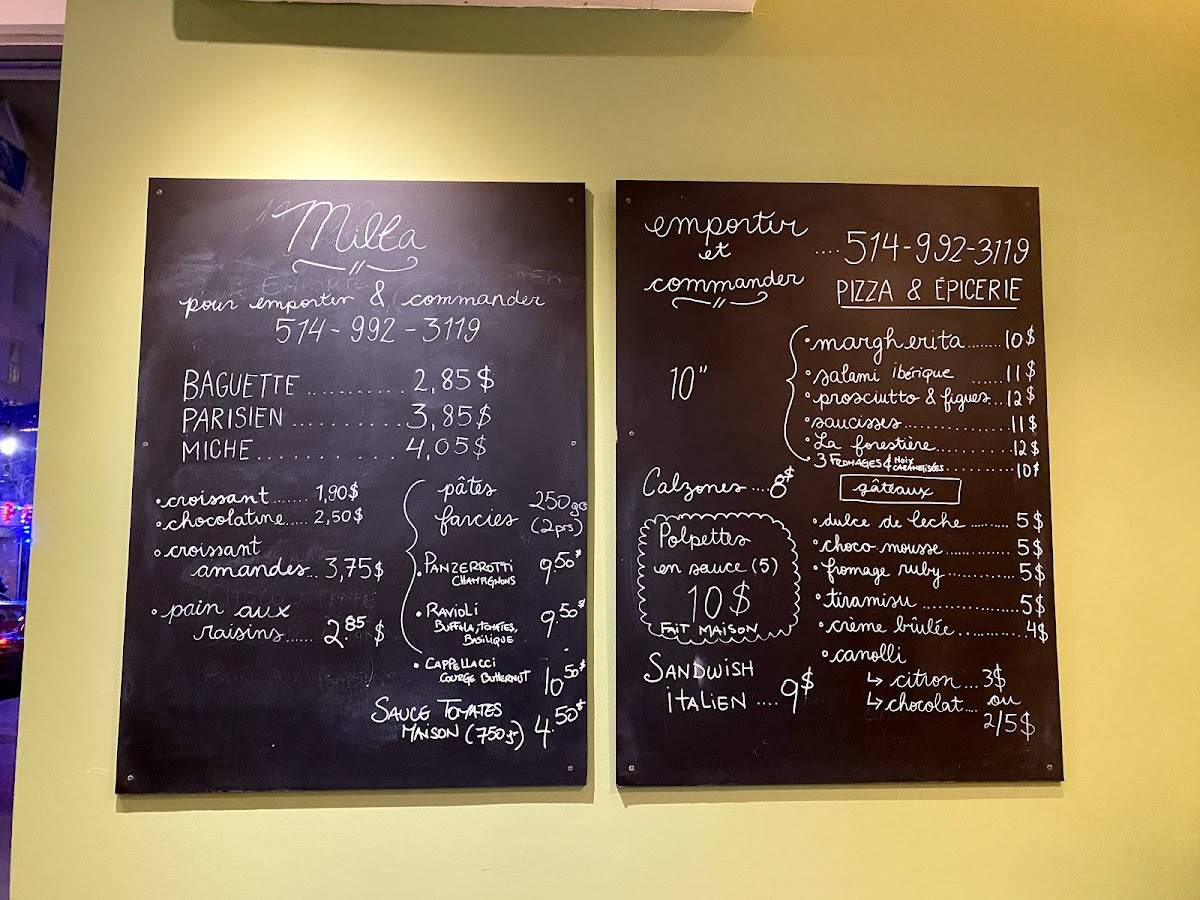 Milla
pour emporter & commander
514-992-3119
BAGUETTE .......... 2,85$
PARISIEN .......... 3,85$
MICHE .......... 4,05$
• croissant ....... 1,90$
• chocolatine ..... 2,50$
• croissant
amandes... 3,75$
• pain aux
raisins...... 2.85 $
pâtes
farcies
250grs
(2prs)
• PANZERROTTI
CHAMPIGNONS
9.50$
• RAVIOLI
BUFFALA, TOMATES,
BASILIQUE
9.50$
• CAPPELLACCI
COURGE BUTTERNUT
10.50$
SAUCE TOMATES
MAISON (750gr) 4.50$
emporter
et
commander
.... 514-992-3119
PIZZA & ÉPICERIE
10"
• margherita........10$
• salami ibérique ......11$
• prosciutto & figues...12$
• saucisses...............11$
• La forestière............12$
• 3 FROMAGES & NOIX
CARAMELISÉES............10$
Calzones .... 8$
Polpettes
en sauce (5)
10$
FAIT MAISON
SANDWISH
ITALIEN .... 9$
gâteaux
• dulce de leche ......... 5$
• choco-mousse ............ 5$
• fromage ruby ............ 5$
• tiramisu ................ 5$
• crème brûlée ............ 4$
• canolli
↳ citron ... 3$
↳ chocolat.... ou
2/5$